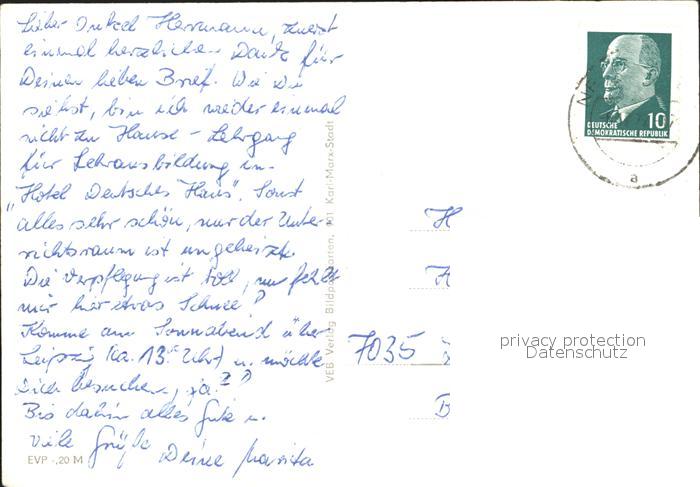 Lieber Onkel Herrmann, zuerst
einmal herzlichen Dank für
Deinen lieben Brief. Wie Du
siehst, bin ich wieder einmal
nicht zu Hause - Lehrgang
für Lehrausbildung im
"Hotel Deutsches Haus". Sonst
alles sehr schön, nur der Unter-
richtsraum ist ungeheizt.
Die Verpflegung ist toll, nur fehlt
mir hier etwas Schnee?
Komme am Sonnabend über
Leipzig (ca. 13 Uhr) u. möchte
Dich besuchen, ja??
Bis dahin alles Gute u.
viele Grüße Deine Marita
EVP -,20 M
VEB Verlag Bildpostkarten, 901 Karl-Marx-Stadt
10
DEUTSCHE
DEMOKRATISCHE REPUBLIK
a
H
A
7035
privacy protection
Datenschutz